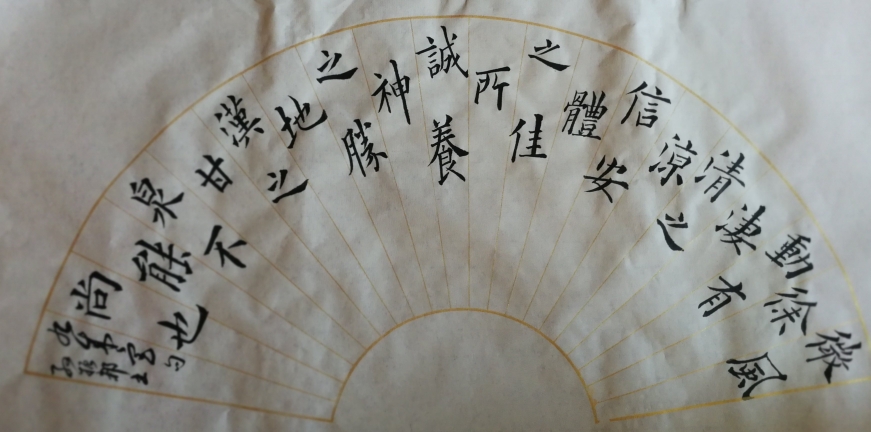 微風
徐
動有
淒
清之
涼
信安
體
之佳
所
誠養
神
之勝
地
漢之
甘
泉不
能
尚也
九成宮句